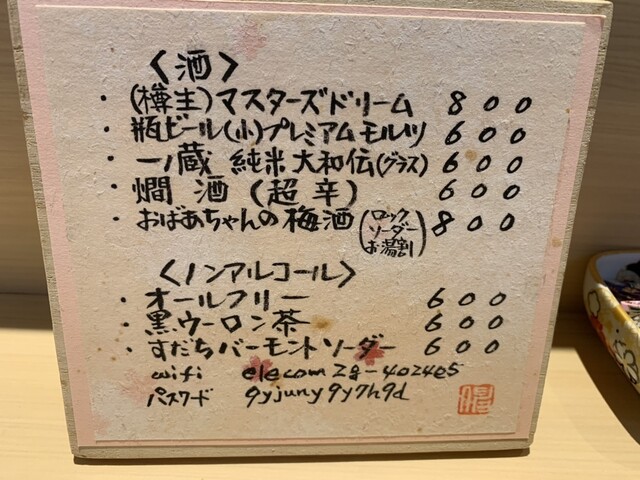 〈酒〉
・(樽生)マスターズドリーム 800
・瓶ビール(小)プレミアムモルツ 600
・一ノ蔵 純米 大和伝(グラス) 600
・燗酒(超辛) 600
・おばあちゃんの梅酒(ロック ソーダー お湯割) 800
〈ノンアルコール〉
・オールフリー 600
・黒ウーロン茶 600
・すだちバーモントソーダー 600
wifi elecom2g-4024e5
パスワード 9yjuny9y7h9d